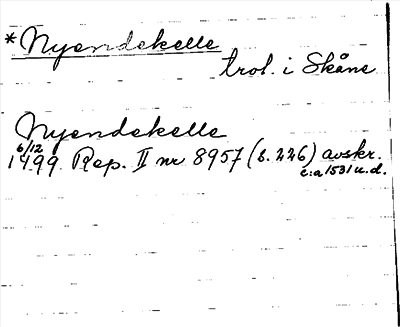 *Nyendekelle
trol. i Skåne
Nyendekelle
6/12
1499 Rep. II nr 8957 (s. 226) avskr.
c:a 1531 u.d.